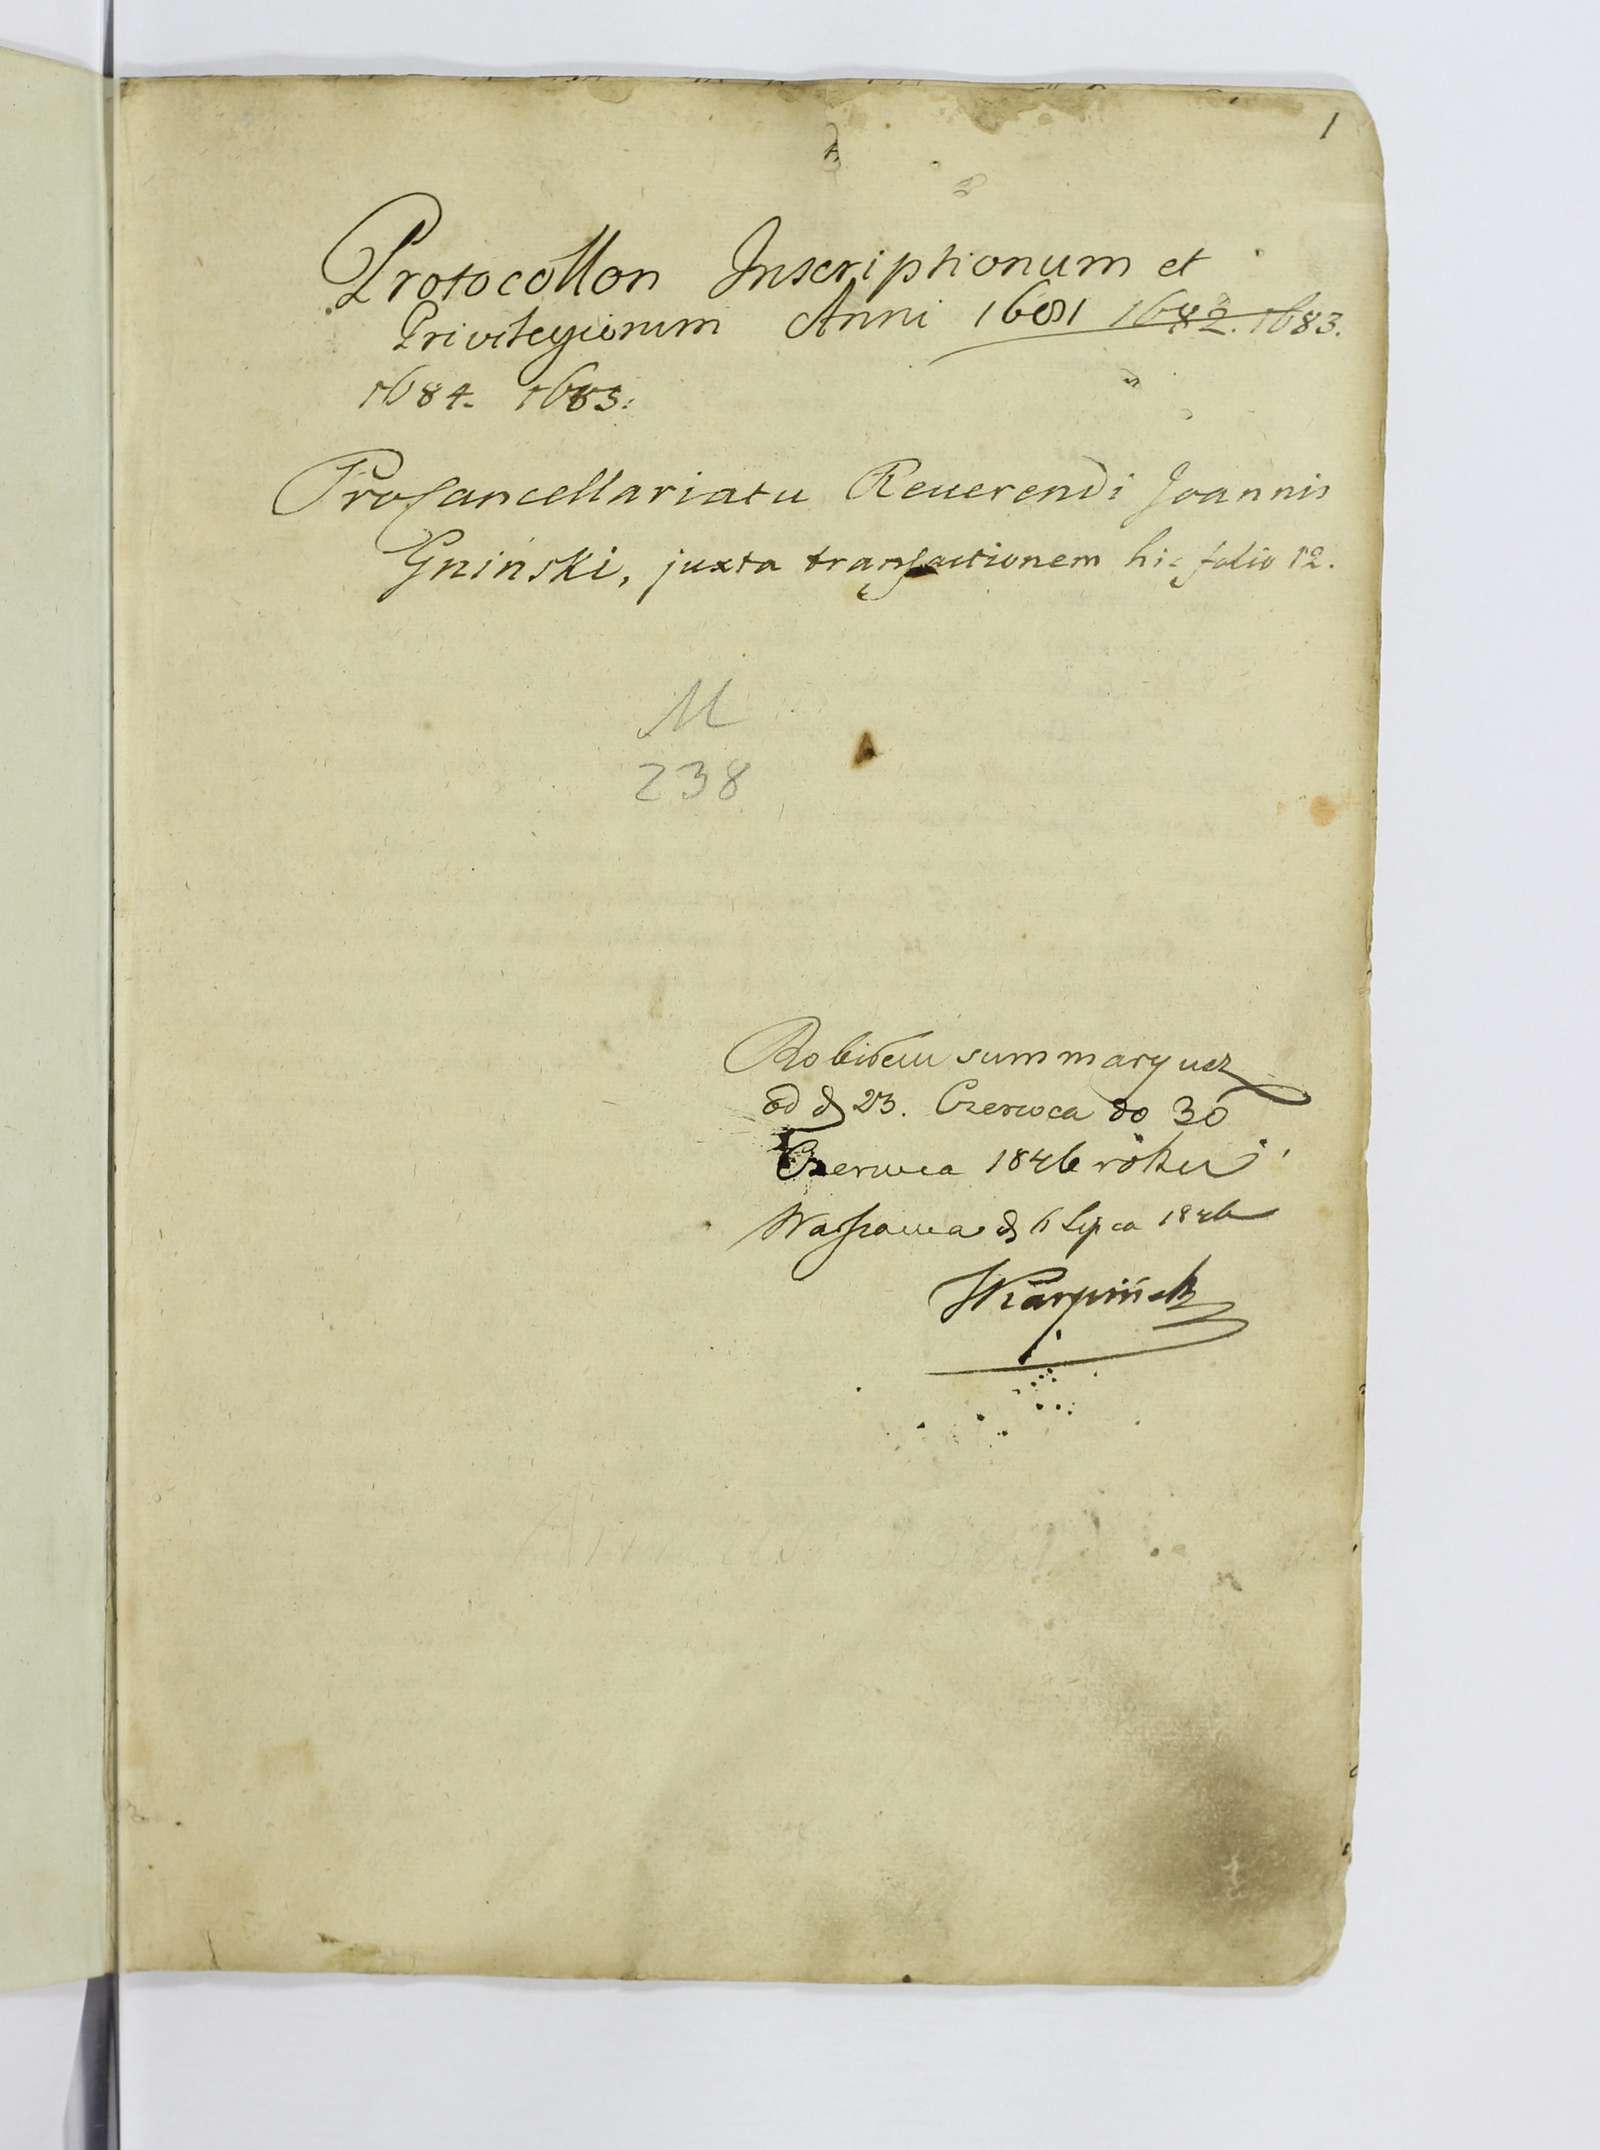 1
Protocollon Inscriptionum et
Privilegiorum Anni 1681 1682. 1683.
1684. 1685.
ProCancellariatu Reuerendi Joannis
Gniński, juxta transactionem hic folio 12.
M
238
Robiłem summaryusz
od d 23. Czerwca do 30
Czerwca 1846 roku
Warszawa d 6 Lipca 1846
WKarpiński